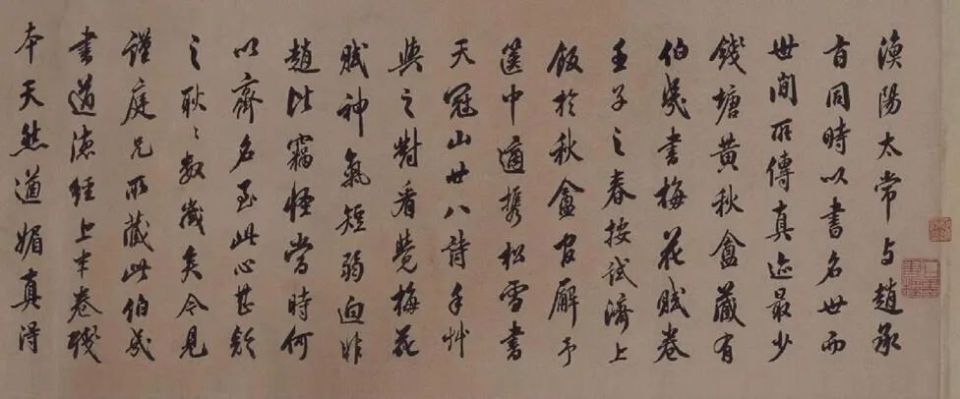 漁陽太常与趙承
旨同時以書名世而
世間所傳真迹最少
錢塘黄秋盦藏有
伯幾書梅花賦卷
壬子之春按試濟上
飯於秋盦官廨予
篋中適携松雪書
天冠山廿八詩手艸
與之對看覺梅花
賦神氣短弱迥非
趙比竊怪當時何
以齊名至此心甚疑
之耿〻數歲矣今見
謹庭兄所藏此伯幾
書道德經上半卷殘
本天然遒媚真得